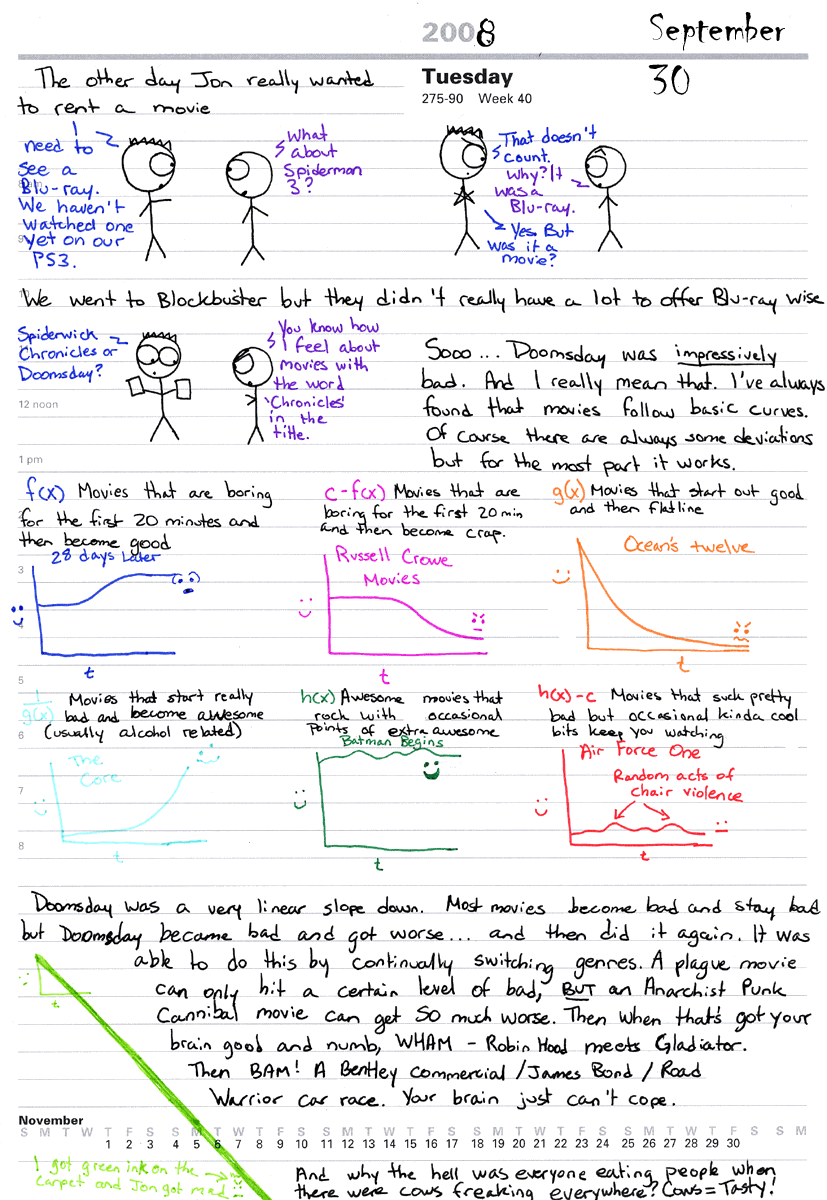 2008
September
Tuesday
30
275-90 Week 40
The other day Jon really wanted
to rent a movie
I
need to
see a
Blu-ray.
We haven't
watched one
yet on our
PS3.
What
about
Spiderman
3?
That doesn't
count.
Why? It
was a
Blu-ray.
Yes. But
was it a
movie?
9
We went to Blockbuster but they didn't really have a lot to offer Blu-ray wise
Spiderwick
Chronicles or
Doomsday?
You know how
I feel about
movies with
the word
'Chronicles'
in the
title.
12 noon
1 pm
Sooo... Doomsday was impressively
bad. And I really mean that. I've always
found that movies follow basic curves.
Of course there are always some deviations
but for the most part it works.
f(x) Movies that are boring
for the first 20 minutes and
then become good
28 days later
t
c-f(x) Movies that are
boring for the first 20 min
and then become crap.
Russell Crowe
Movies
t
g(x) Movies that start out good
and then flatline
Ocean's twelve
t
2
3
4
5
1/g(x) Movies that start really
bad and become awesome
(usually alcohol related)
The
Core
t
h(x) Awesome movies that
rock with occasional
points of extra awesome
Batman Begins
t
h(x)-c Movies that suck pretty
bad but occasional kinda cool
bits keep you watching
Air Force One
Random acts of
chair violence
t
6
7
8
Doomsday was a very linear slope down. Most movies become bad and stay bad
but Doomsday became bad and got worse... and then did it again. It was
able to do this by continually switching genres. A plague movie
can only hit a certain level of bad, BUT an Anarchist Punk
Cannibal movie can get SO much worse. Then when that's got your
brain good and numb, WHAM - Robin Hood meets Gladiator.
Then BAM! A Bentley commercial / James Bond / Road
Warrior car race. Your brain just can't cope.
t
November
S M T W T F S S M T W T F S S M T W T F S S M T W T F S S M T W T F S S M
1 2 3 4 5 6 7 8 9 10 11 12 13 14 15 16 17 18 19 20 21 22 23 24 25 26 27 28 29 30
I got green ink on the
carpet and Jon got mad
And why the hell was everyone eating people when
there were cows freaking everywhere? Cows = Tasty!